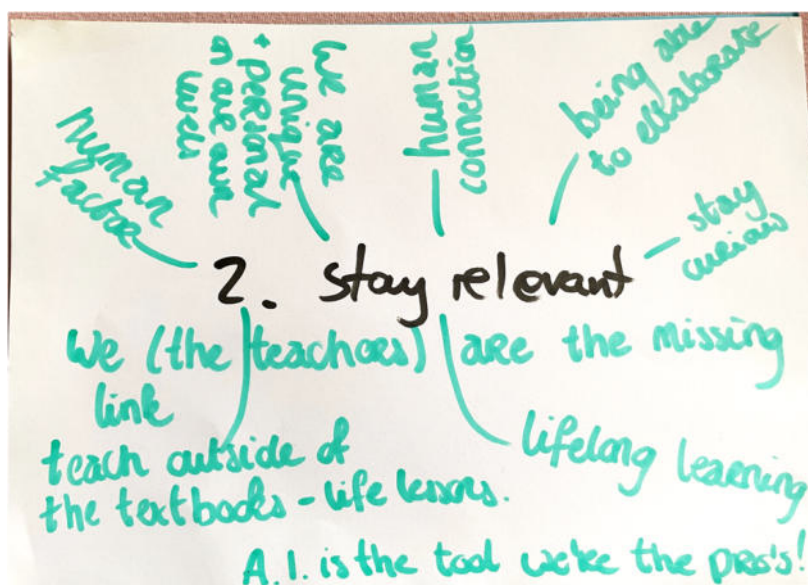 human
factor
We are
unique
+ personal
in are own
lives
human
connection
being able
to collaborate
stay
curious
2. stay relevant
We (the teachers) are the missing
link
teach outside of
the textbooks - life lessons.
lifelong learning
A.I. is the tool we're the pro's!